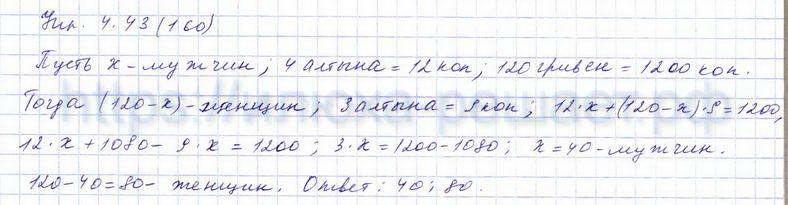 Упр. 4.43 (160)
Пусть x - мужчин; 4 алтына = 12 коп; 120 гривен = 1200 коп.
Тогда (120-x) - женщин; 3 алтына = 9 коп; 12·x+(120-x)·9=1200,
12·x+1080-9·x=1200; 3·x=1200-1080; x=40-мужчин.
120-40=80- женщин. Ответ: 40; 80.